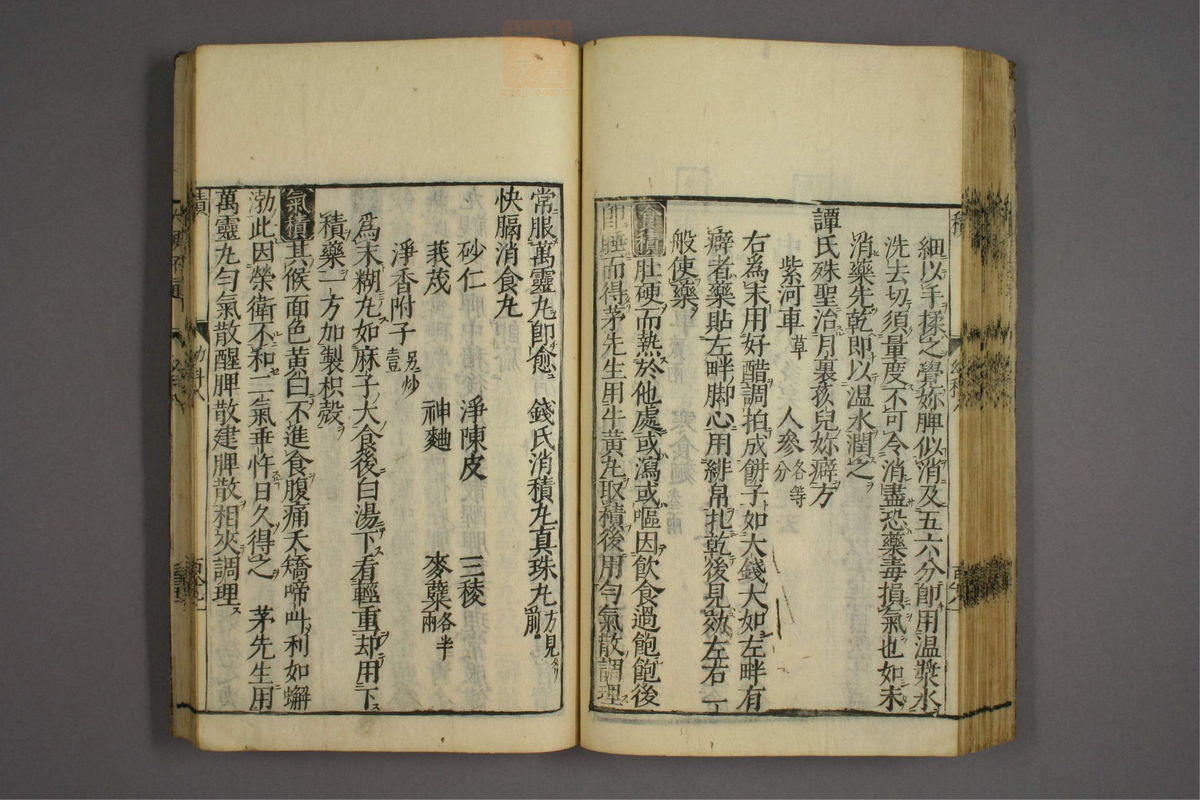 細以手揉之覺妳脾似消及五六分即用温漿水
洗去切須量度不可令消盡恐藥毒損氣也如未
消藥先乾即以温水潤之
譚氏殊聖治月裏孩兒妳癖方
紫河車草 人參各等分
右為末用好醋調拍成餅子如大錢大如左畔有
癖者藥貼左畔脚心用緋帛扎乾後見效左右一
般使藥
食積肚硬而熱於他處或瀉或嘔因飲食過飽飽後
即睡而得茅先生用牛黄丸取積後用勻氣散調理
常服萬靈丸即愈 錢氏消積丸真珠丸方見前
快膈消食丸
砂仁 淨陳皮 三稜
莪茂 神麯 麥蘖各半兩
淨香附子另炒壹
爲末糊丸如麻子大食後白湯下看輕重却用下
積藥一方加製枳殻
氣積其候面色黄白不進食腹痛夭矯啼叫利如蠏
渤此因榮衛不和二氣乖忤日久得之 茅先生用
萬靈丸勻氣散醒脾散建脾散相夾調理
積